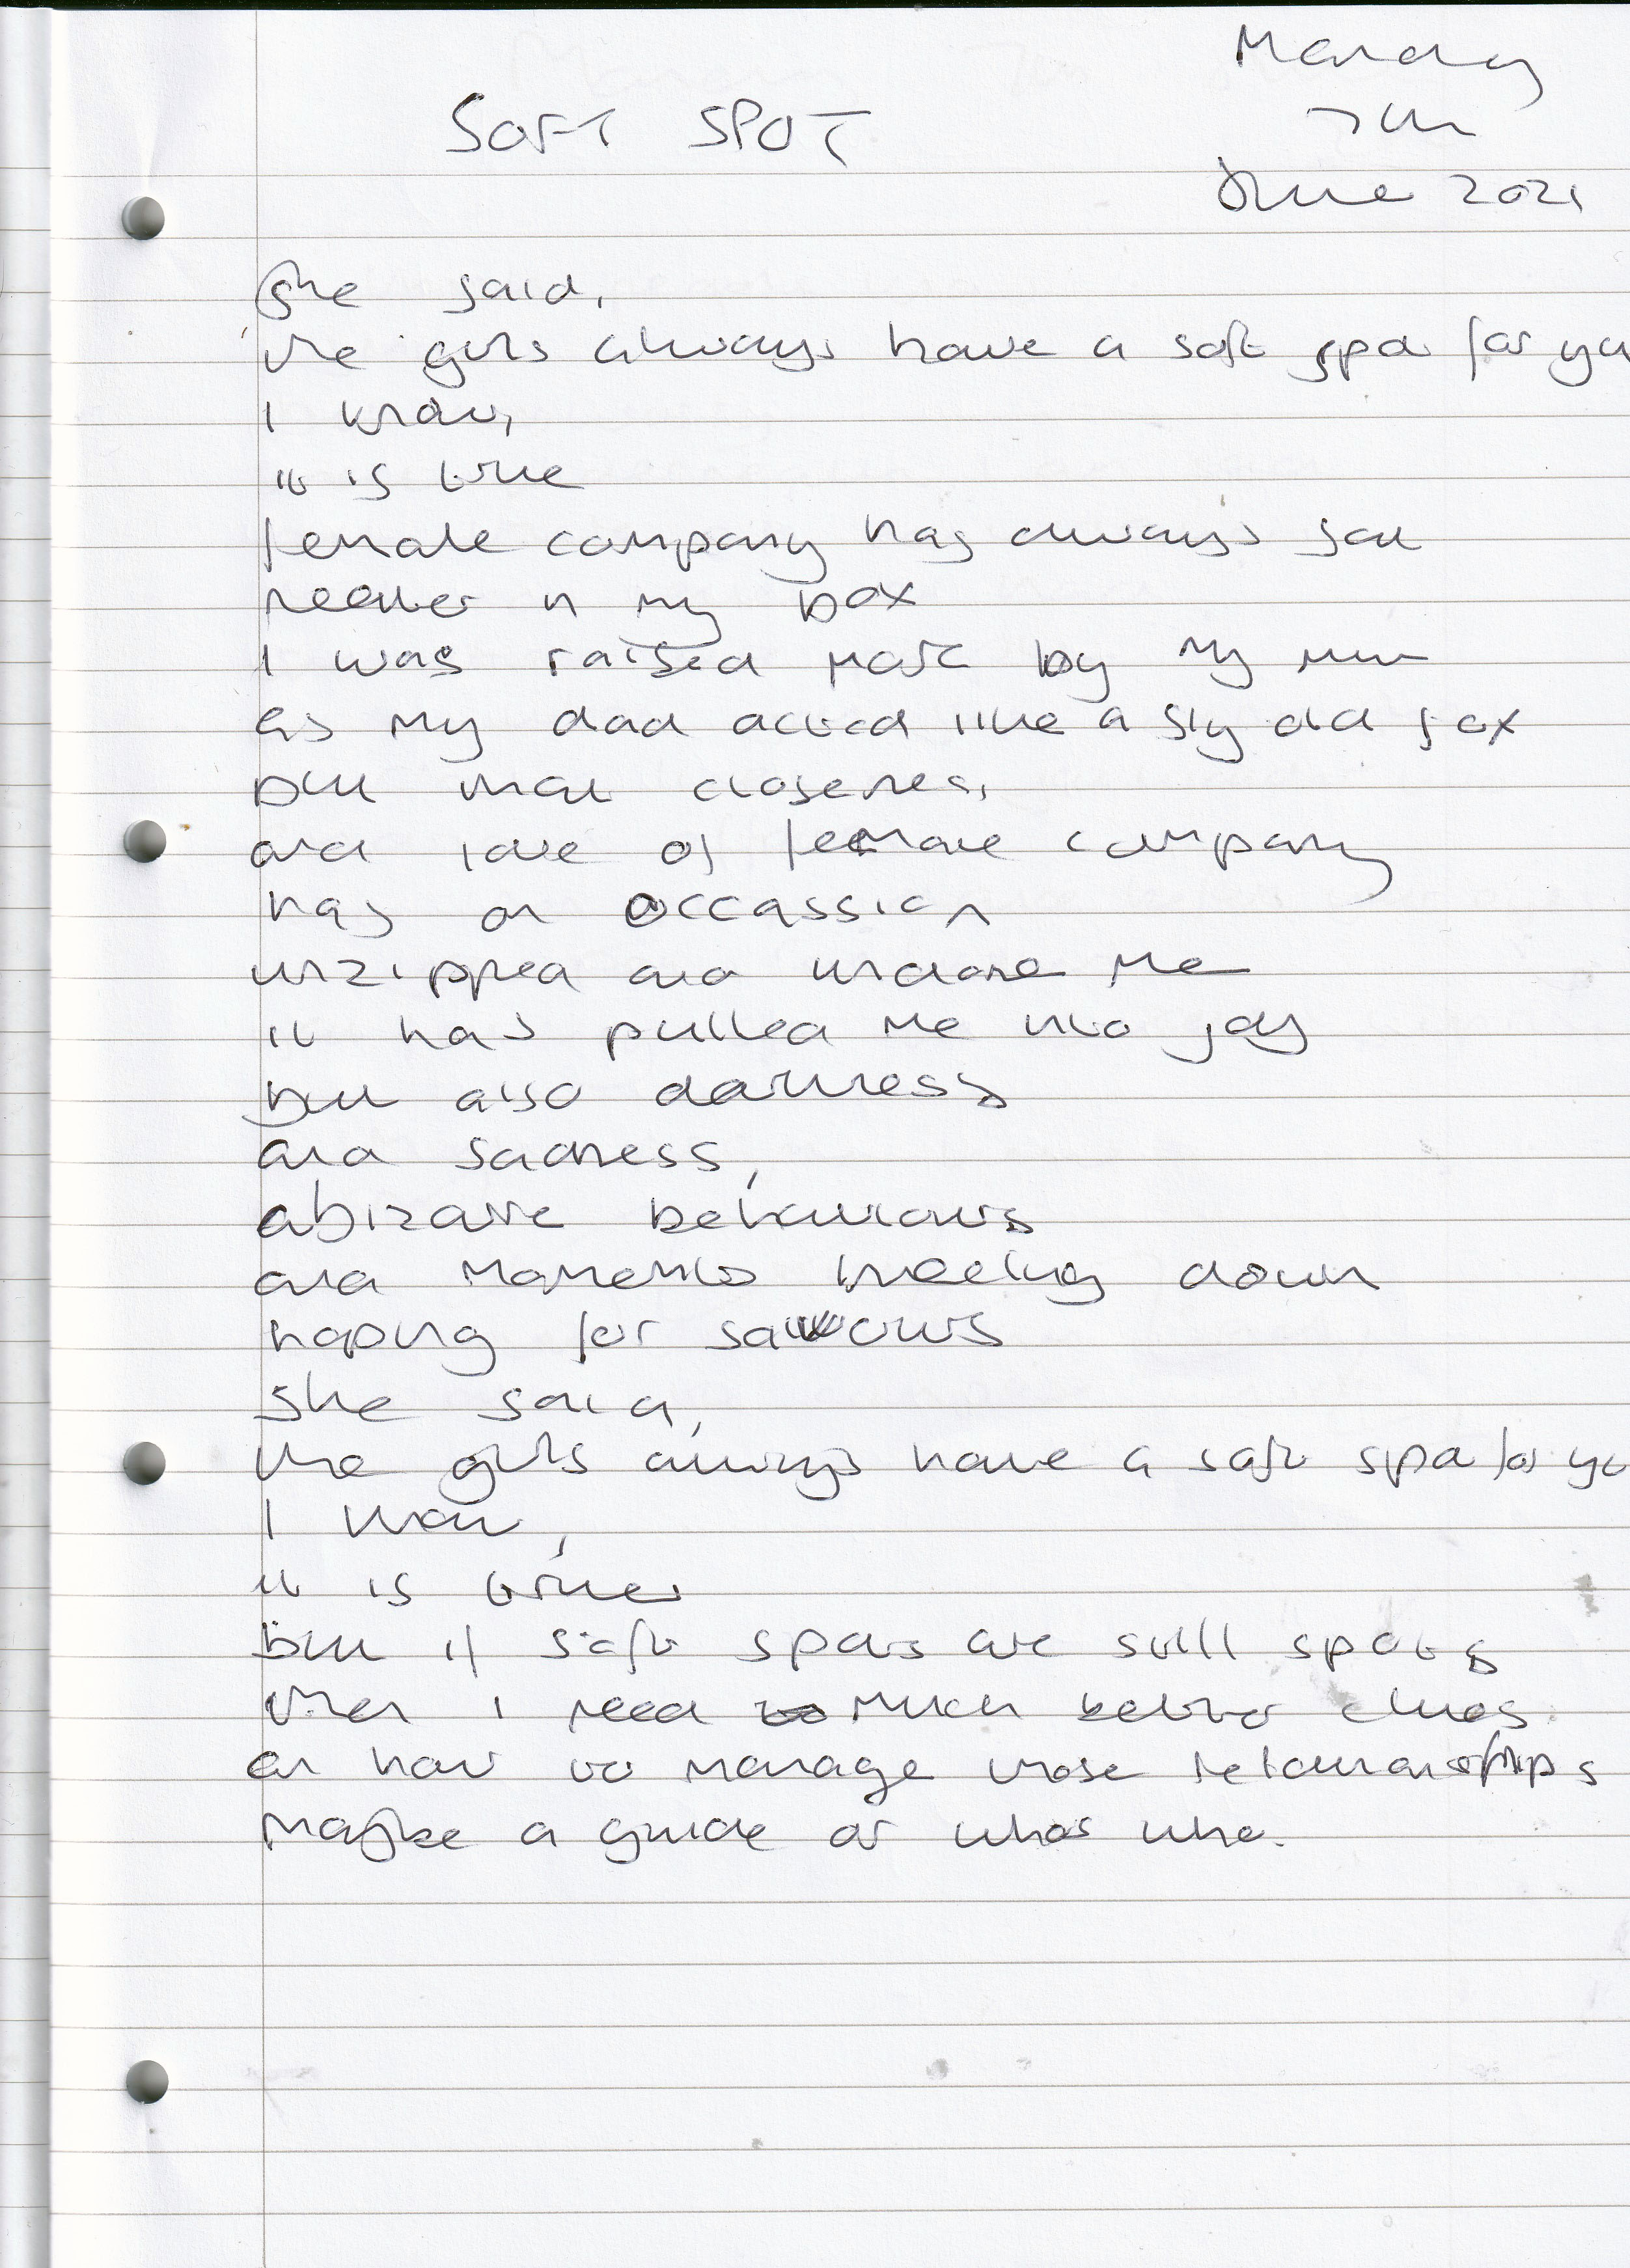 Monday
7th
June 2021
SOFT SPOT
She said,
the girls always have a soft spot for you
I know,
it is true
female company has always sat
neater in my box
I was raised more by my mum
as my dad acted like a sly old fox
but that closeness,
and love of female company
has on occassion
unzipped and undone me
it has pulled me into joy
but also darkness
and sadness,
a bizarre behaviours
and moments kneeling down
hoping for saviours
she said,
the girls always have a soft spot for you
I know,
it is true
but if soft spots are still spots
then I need much better clues
on how to manage those relationships
maybe a guide or who's who.